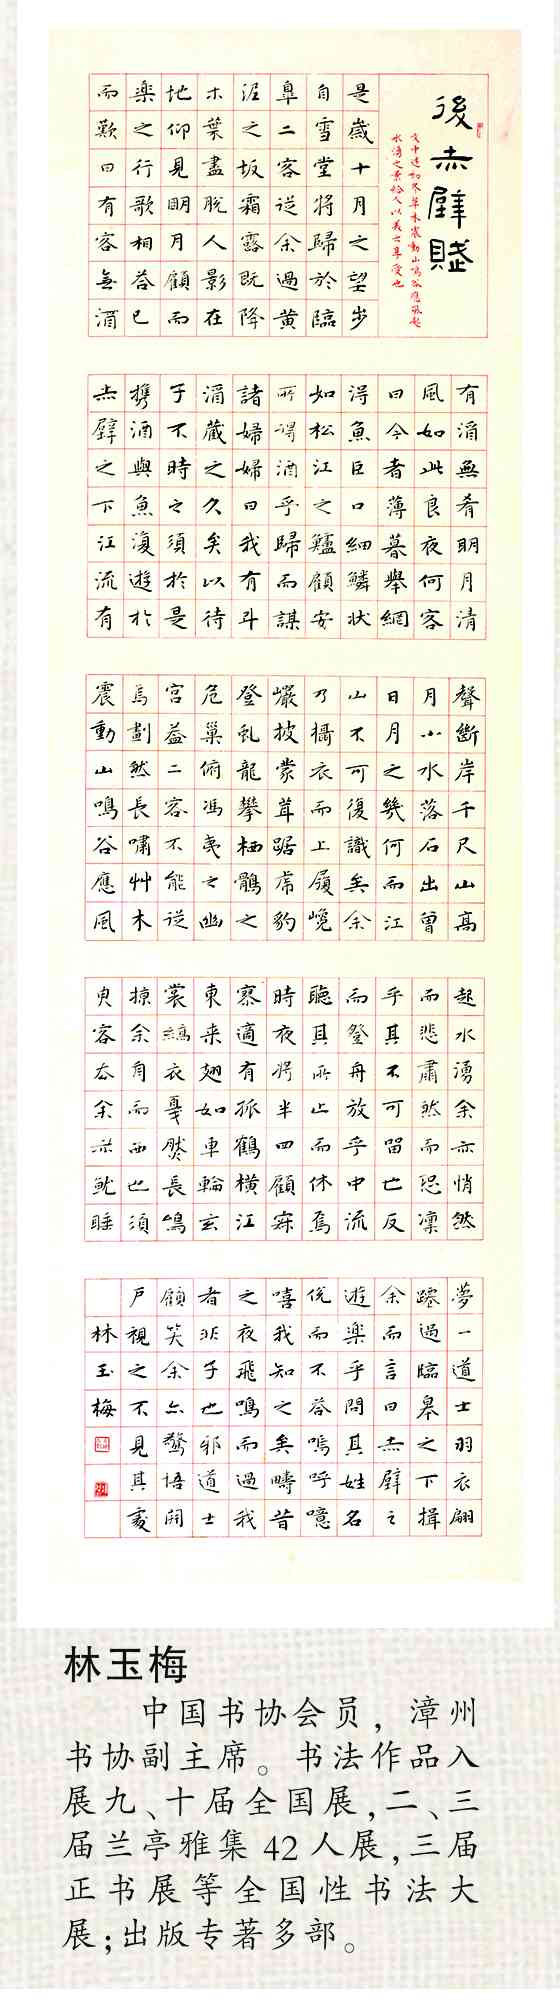 後赤壁賦
是歲十月之望步
自雪堂將歸於臨
皋二客從余過黃
泥之坂霜露既降
木葉盡脫人影在
地仰見明月顧而
樂之行歌相答已
而歎曰有客無酒
有酒無肴明月清
風如此良夜何客
曰今者薄暮舉網
得魚巨口細鱗狀
如松江之鱸顧安
所得酒乎歸而謀
諸婦婦曰我有斗
酒藏之久矣以待
子不時之須於是
攜酒與魚復遊於
赤壁之下江流有
聲斷岸千尺山高
月小水落石出曾
日月之幾何而江
山不可復識矣余
乃攝衣而上履巉
巖披蒙茸踞虎豹
登虬龍攀栖鶻之
危巢俯馮夷之幽
宮蓋二客不能從
焉劃然長嘯艸木
震動山鳴谷應風
起水湧余亦悄然
而悲肅然而恐凜
乎其不可留也反
而登舟放乎中流
聽其所止而休焉
時夜將半四顧寂
寥適有孤鶴橫江
東来翅如車輪玄
裳縞衣戛然長鳴
掠余舟而西也須
臾客去余亦就睡
夢一道士羽衣翩
躚過臨皋之下揖
余而言曰赤壁之
遊樂乎問其姓名
俛而不答嗚呼噫
嘻我知之矣疇昔
之夜飛鳴而過我
者非子也邪道士
顧笑余亦驚悟開
戶視之不見其處
林玉梅
林玉梅
中国书协会员，漳州
书协副主席。书法作品入
展九、十届全国展，二、三
届兰亭雅集 42 人展，三届
正书展等全国性书法大
展；出版专著多部。